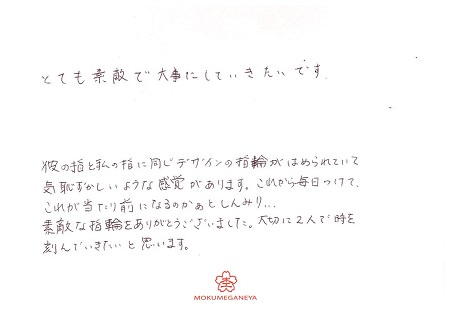 とても素敵で大事にしていきたいです。
彼の指と私の指に同じデザインの指輪がはめられていて
気恥ずかしいような感覚があります。これから毎日つけて、
これが当たり前になるのかぁとしんみり...
素敵な指輪をありがとうございました。大切に2人で時を
刻んでいきたいと思います。
MOKUMEGANEYA